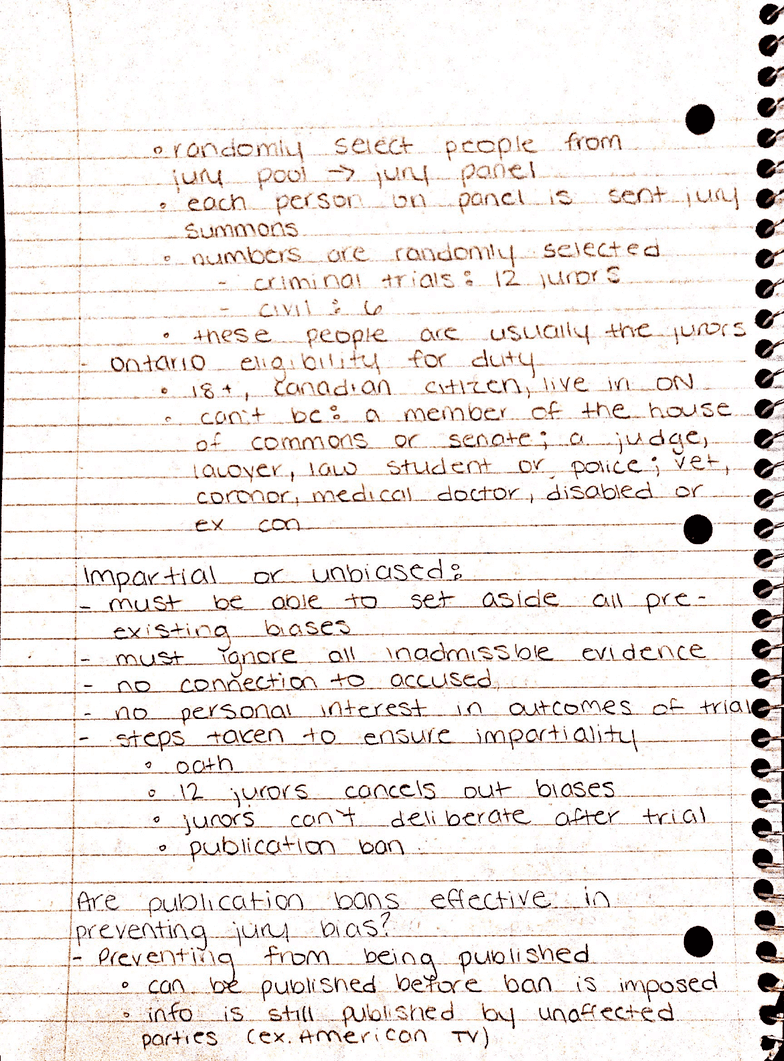 ◦ randomly select people from
jury pool → jury panel
◦ each person on panel is sent jury
summons
◦ numbers are randomly selected
- criminal trials: 12 jurors
- civil: 6
◦ these people are usually the jurors
- ontario eligibility for duty
◦ 18+, Canadian citizen, live in ON
◦ can't be: a member of the house
of commons or senate; a judge,
lawyer, law student or police; vet,
coronor, medical doctor, disabled or
ex con
Impartial or unbiased:
- must be able to set aside all pre-
existing biases
- must ignore all inadmissble evidence
- no connection to accused
- no personal interest in outcomes of trial
- steps taken to ensure impartiality
◦ oath
◦ 12 jurors cancels out biases
◦ jurors can't deliberate after trial
◦ publication ban
Are publication bans effective in
preventing jury bias?
- Preventing from being published
◦ can be published before ban is imposed
◦ info is still published by unaffected
parties (ex. American TV)